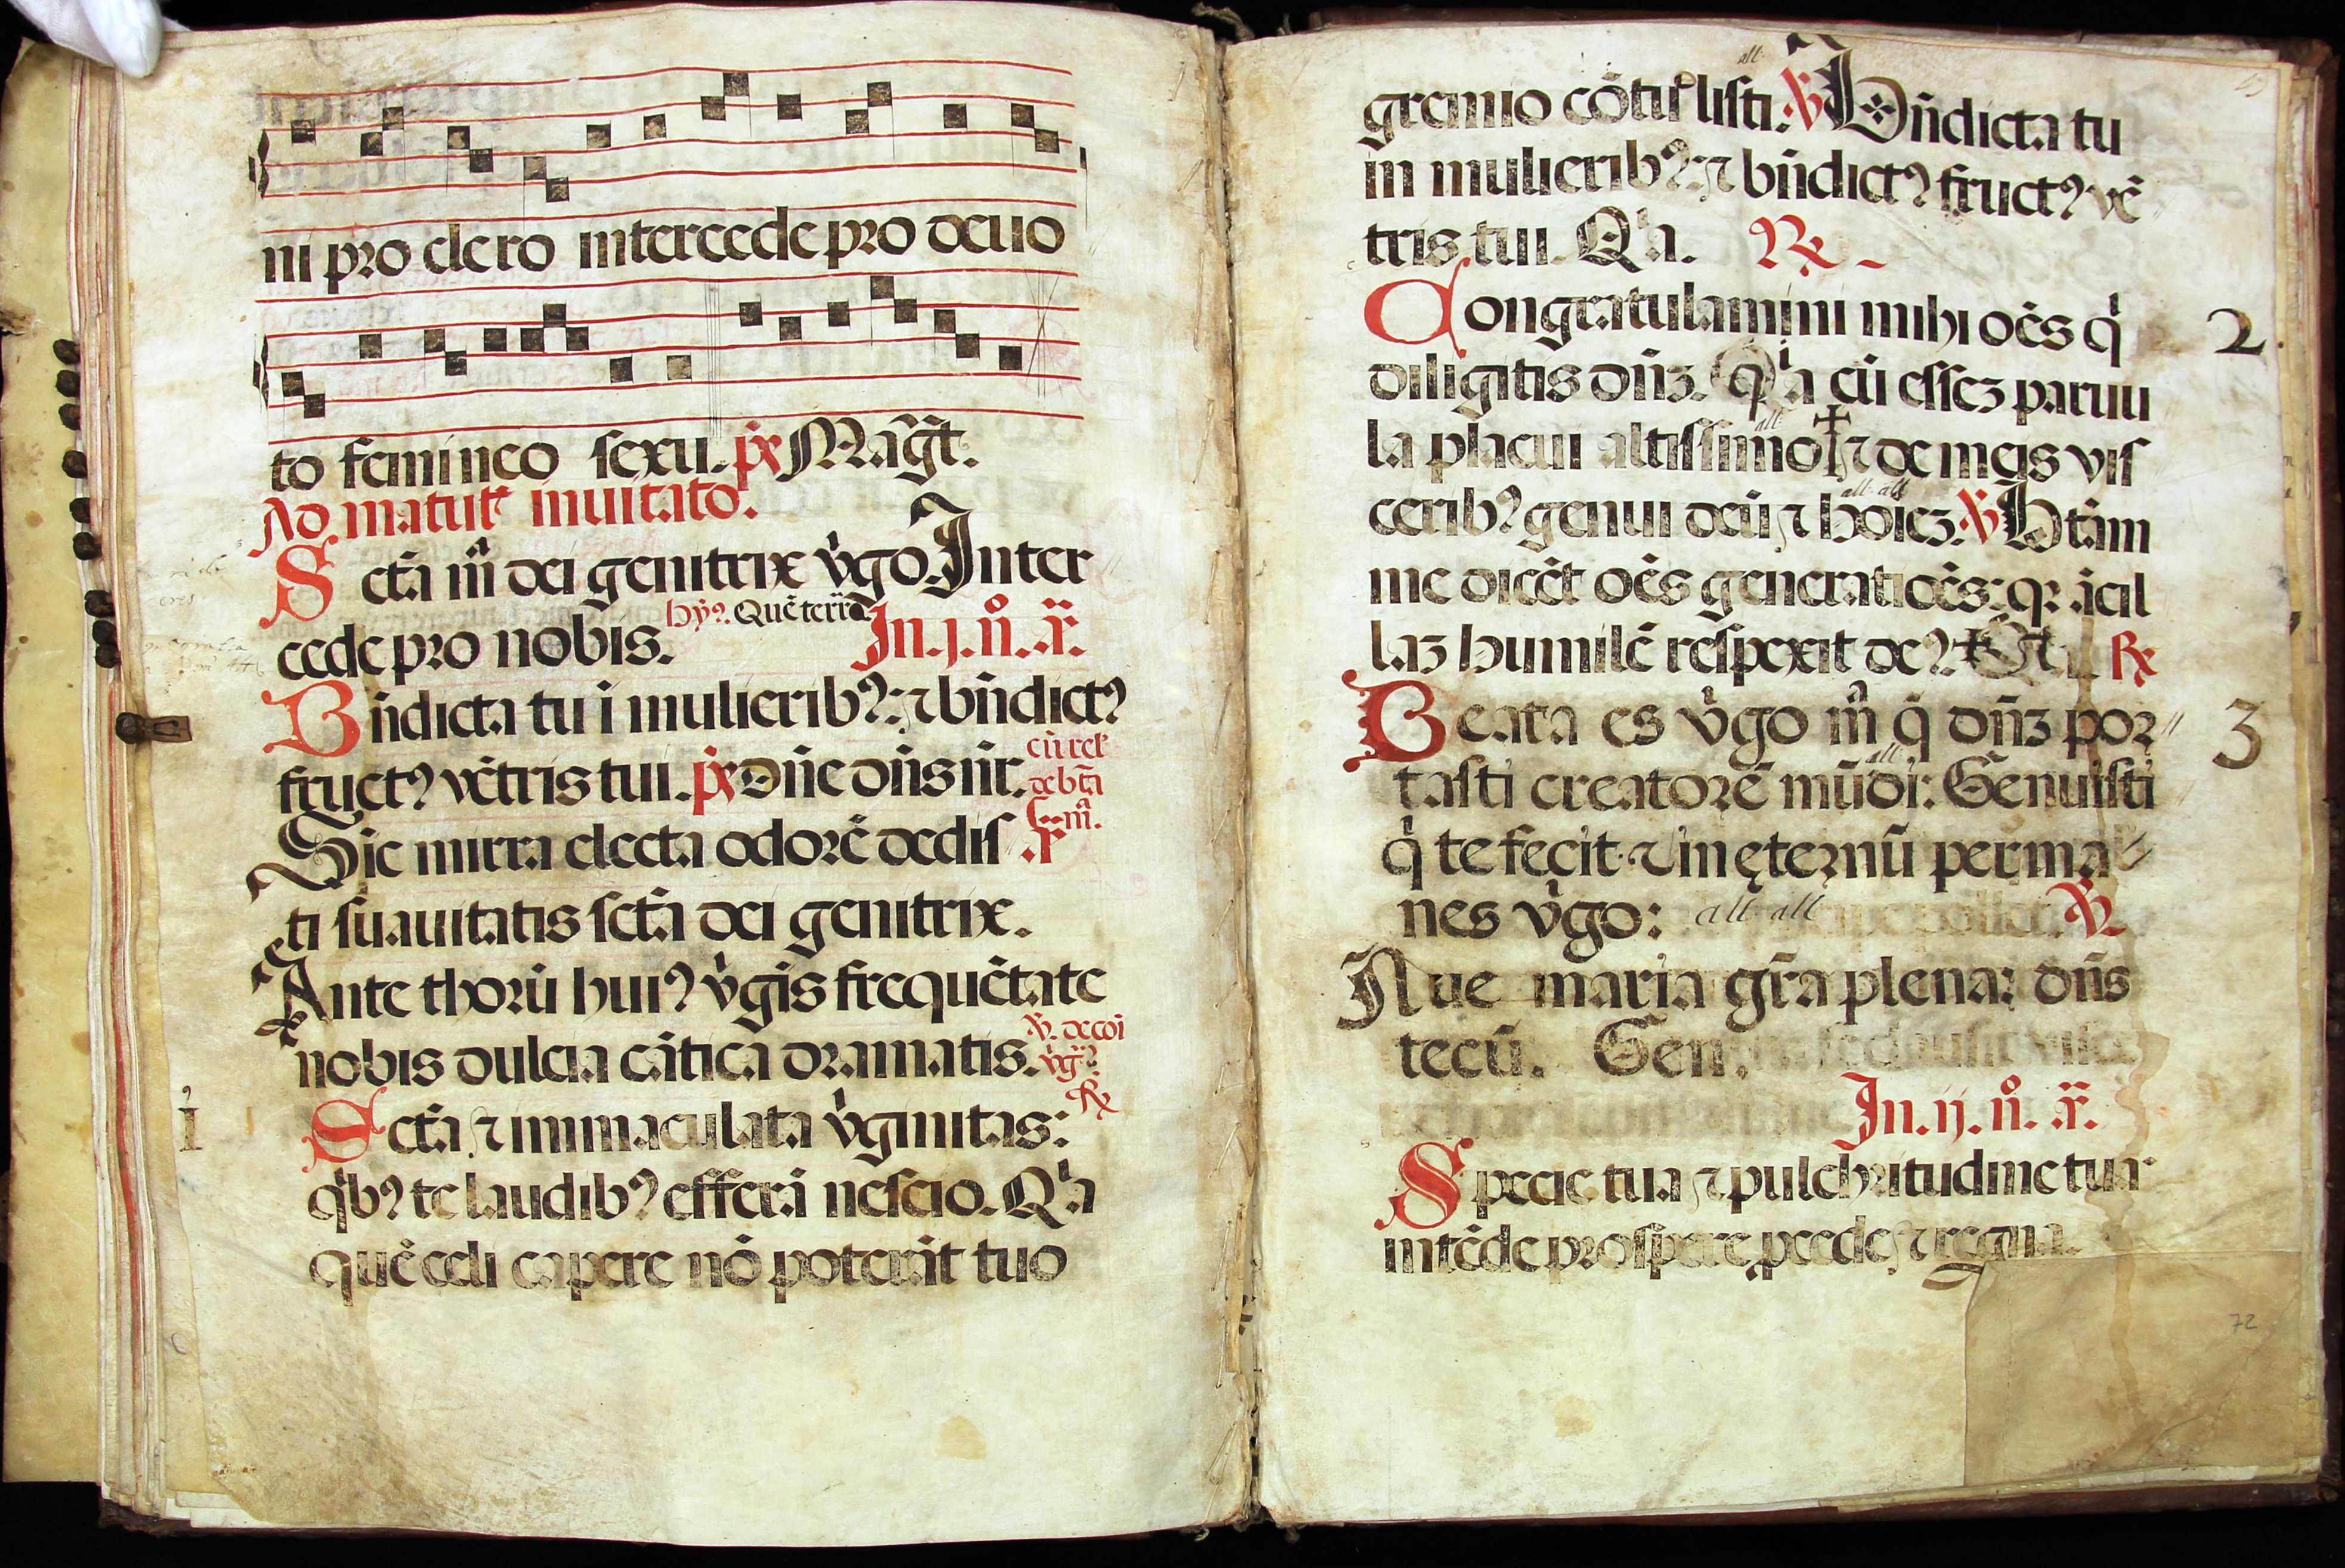 ni pro clero intercede pro deuo
to femineo sexu. ps Magt̃.
Ad matut̃ inuitato.
Sctã mª dei genitrix vͥgo. Inter
cede pro nobis. hyꝰ. Quẽ terra In .j. n̊. a͂.
Bñdicta tu ĩ mulieribꝰ: ⁊ bñdictꝰ
fructꝰ vẽtris tui. ps Dñe dñs nr̃. cũ rel̃
de btã
mª.
Sic mirra electa odorẽ dedis
ti suauitatis sctã dei genitrix.
Ante thorũ huiꝰ vͥgĩs frequẽtate
nobis dulcia cãtica dramatis. ℣. de coĩ
vͥgꝰ.
℟
1 Sctã ⁊ immaculata vͥginitas:
qͥbꝰ te laudibꝰ efferã nescio. Qͥa
quẽ celi capere nõ poterãt tuo
all.
gremio cõtulisti. ℣ Bñdicta tu
in mulieribꝰ: ⁊ bñdictꝰ fructꝰ vẽ
tris tui. Qͥa. ℟
Congratulamini mihi oẽs qͥ 2.
diligitis dñꝫ. Qͥa cũ esseꝫ paruu
all.
la placui altissimo ⁊ de meis vis
all. all.
ceribꝰ genui deũ ⁊ hoieꝫ. ℣ Btãm
me dicẽt oẽs generatiõẽs: qꝛ ãcil
laꝫ humilẽ respexit deꝰ. Et ℟
Beata es vͥgo mª q̃ dñꝫ por 3
all.
tasti creatorẽ mũdi: Genuisti
qͥ te fecit ⁊ in ęternũ perma
nes vͥgo: all. all. ℣.
Aue maria gr̃a plena: dñs
tecũ. Gen.
In .ij. n̊. a͂.
Specie tua ⁊ pulchritudine tua
intẽde prospere pcede ⁊ regna.
72